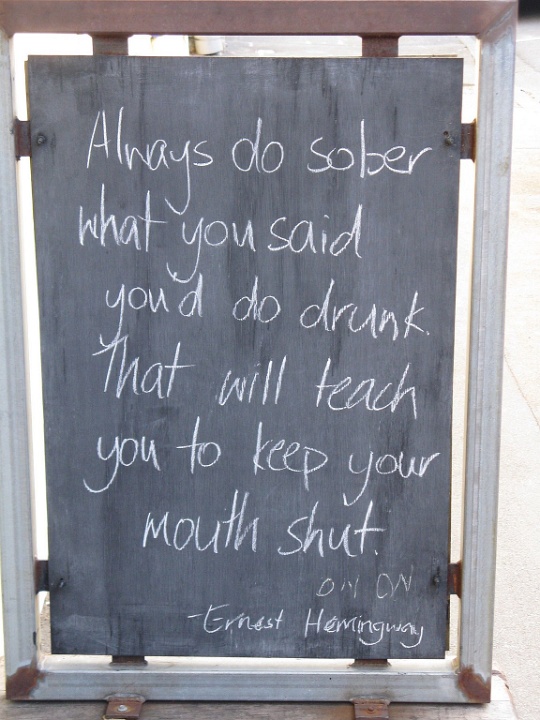 Always do sober
what you said
you'd do drunk.
That will teach
you to keep your
mouth shut.
-Ernest Hemingway